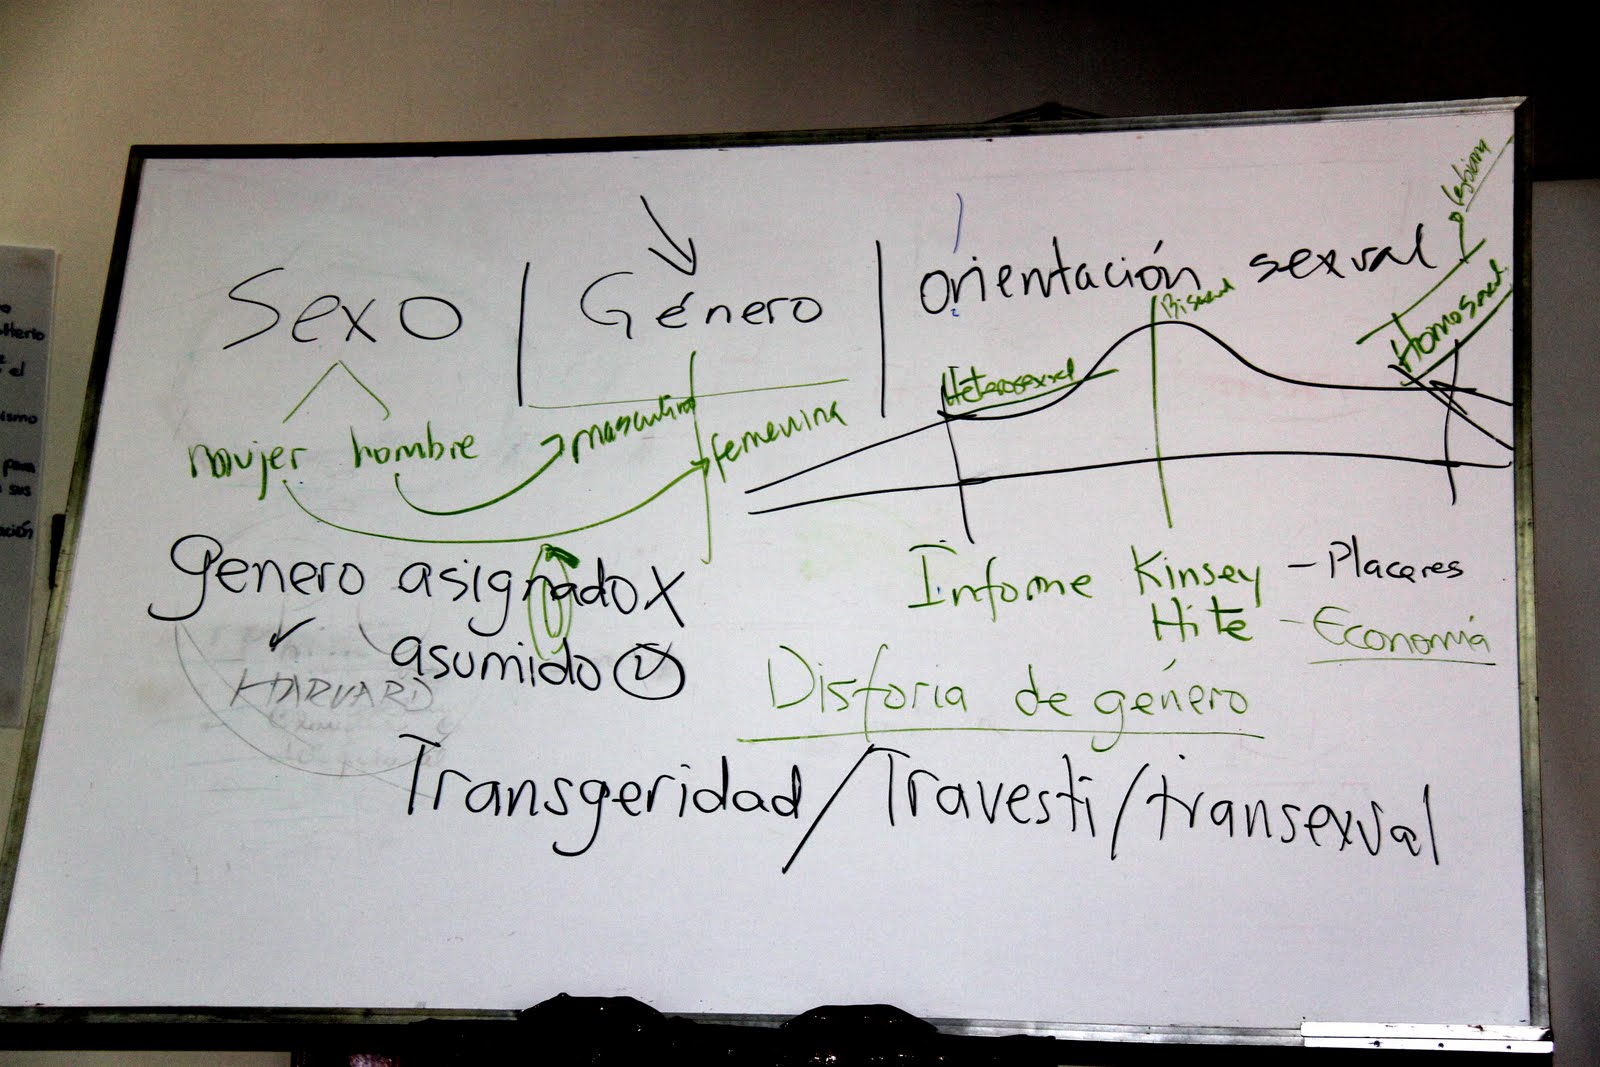 Sexo | Género | orientación sexual
lesbiana
Bisexual
Homosexual
Heterosexual
masculino
femenina
mujer hombre
genero asignado X
Informe Kinsey - Placeres
Hite - Economía
asumido
HARVARD
Disforia de género
Transgeridad / Travesti / transexual
el
ismo
para
sus
ación